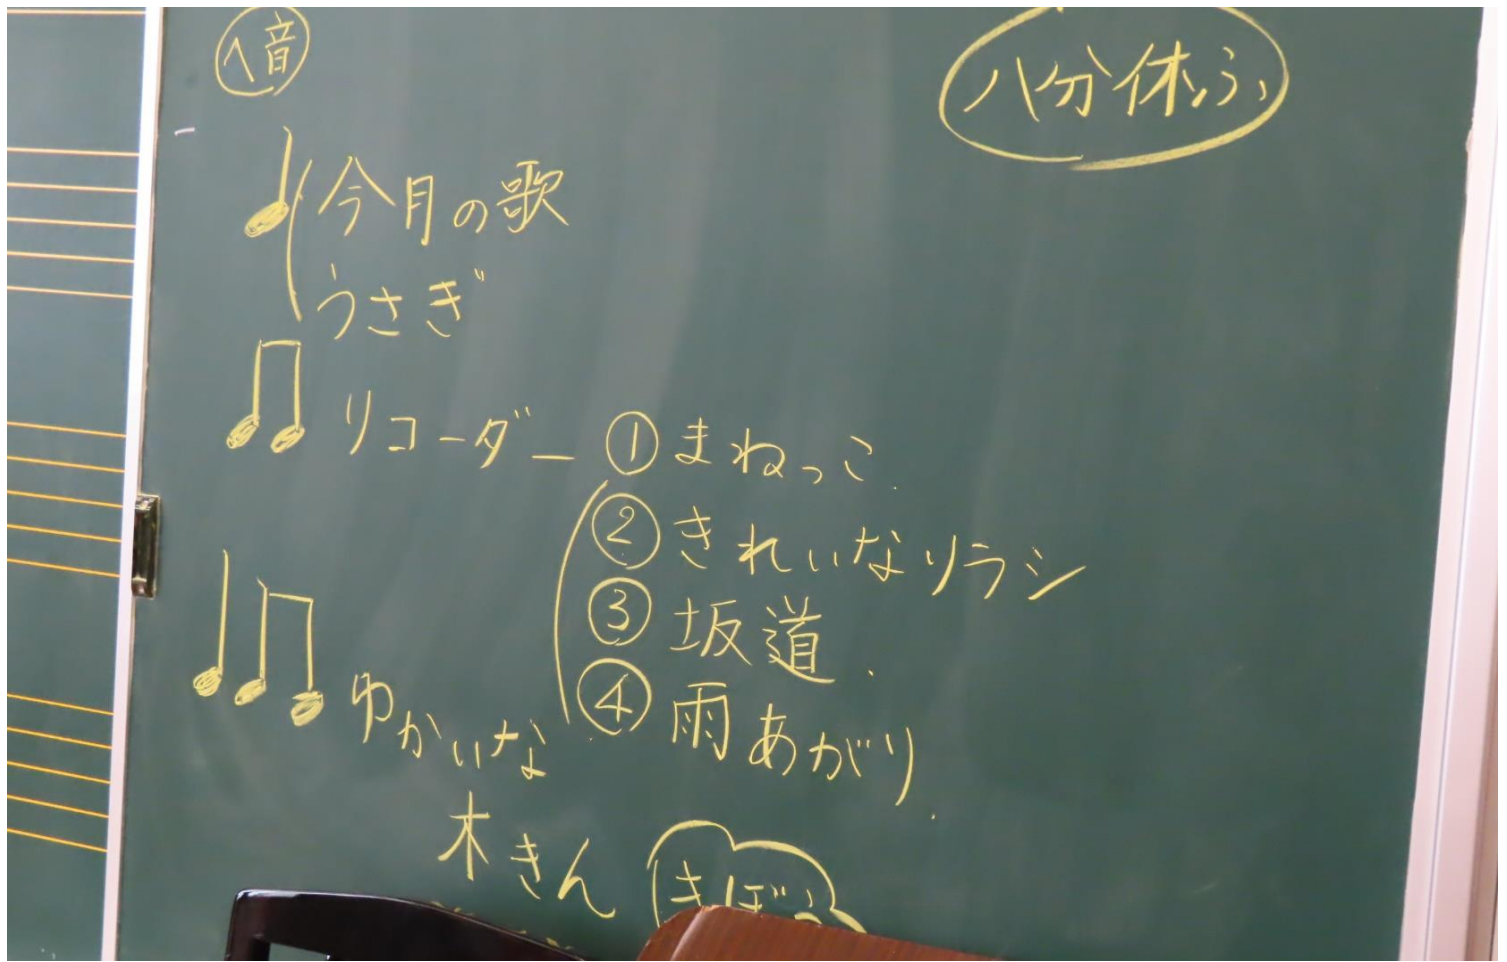 へ音
八分休ふ
今月の歌
うさぎ
リコーダー ①まねっこ.
②きれいなソラシ
③坂道.
④雨あがり.
ゆかいな
木きん